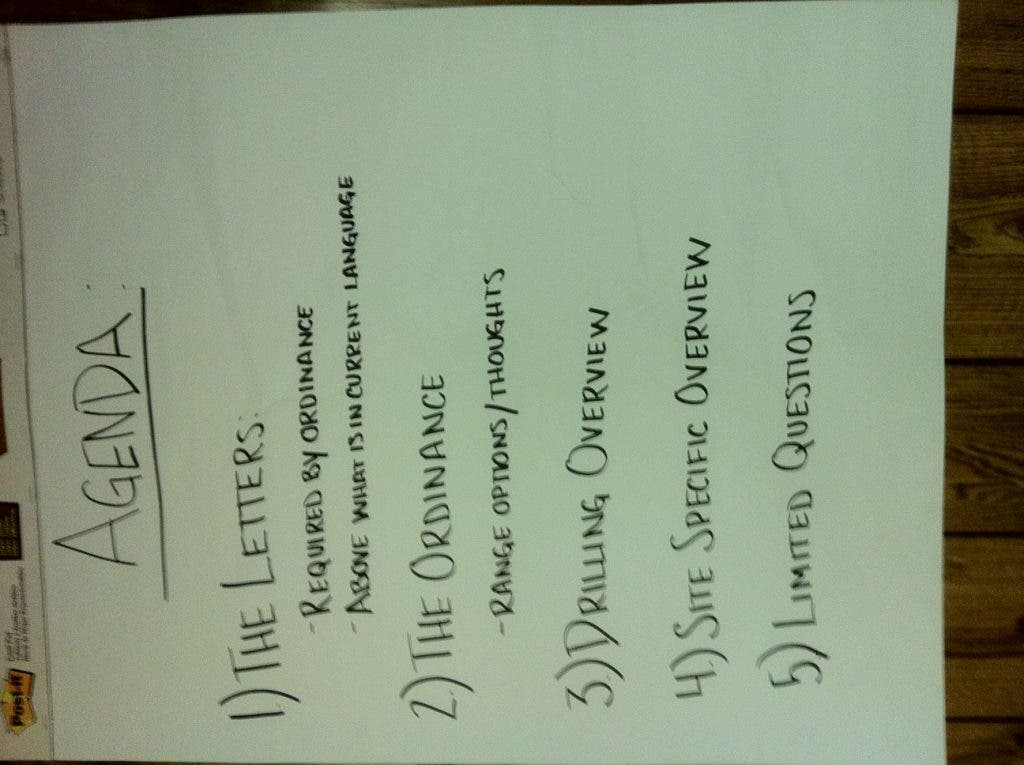 Post-it
AGENDA:
1.) THE LETTERS:
- REQUIRED BY ORDINANCE
- ABOVE WHAT IS IN CURRENT LANGUAGE
2.) THE ORDINANCE
- RANGE OPTIONS/THOUGHTS
3.) DRILLING OVERVIEW
4.) SITE SPECIFIC OVERVIEW
5.) LIMITED QUESTIONS